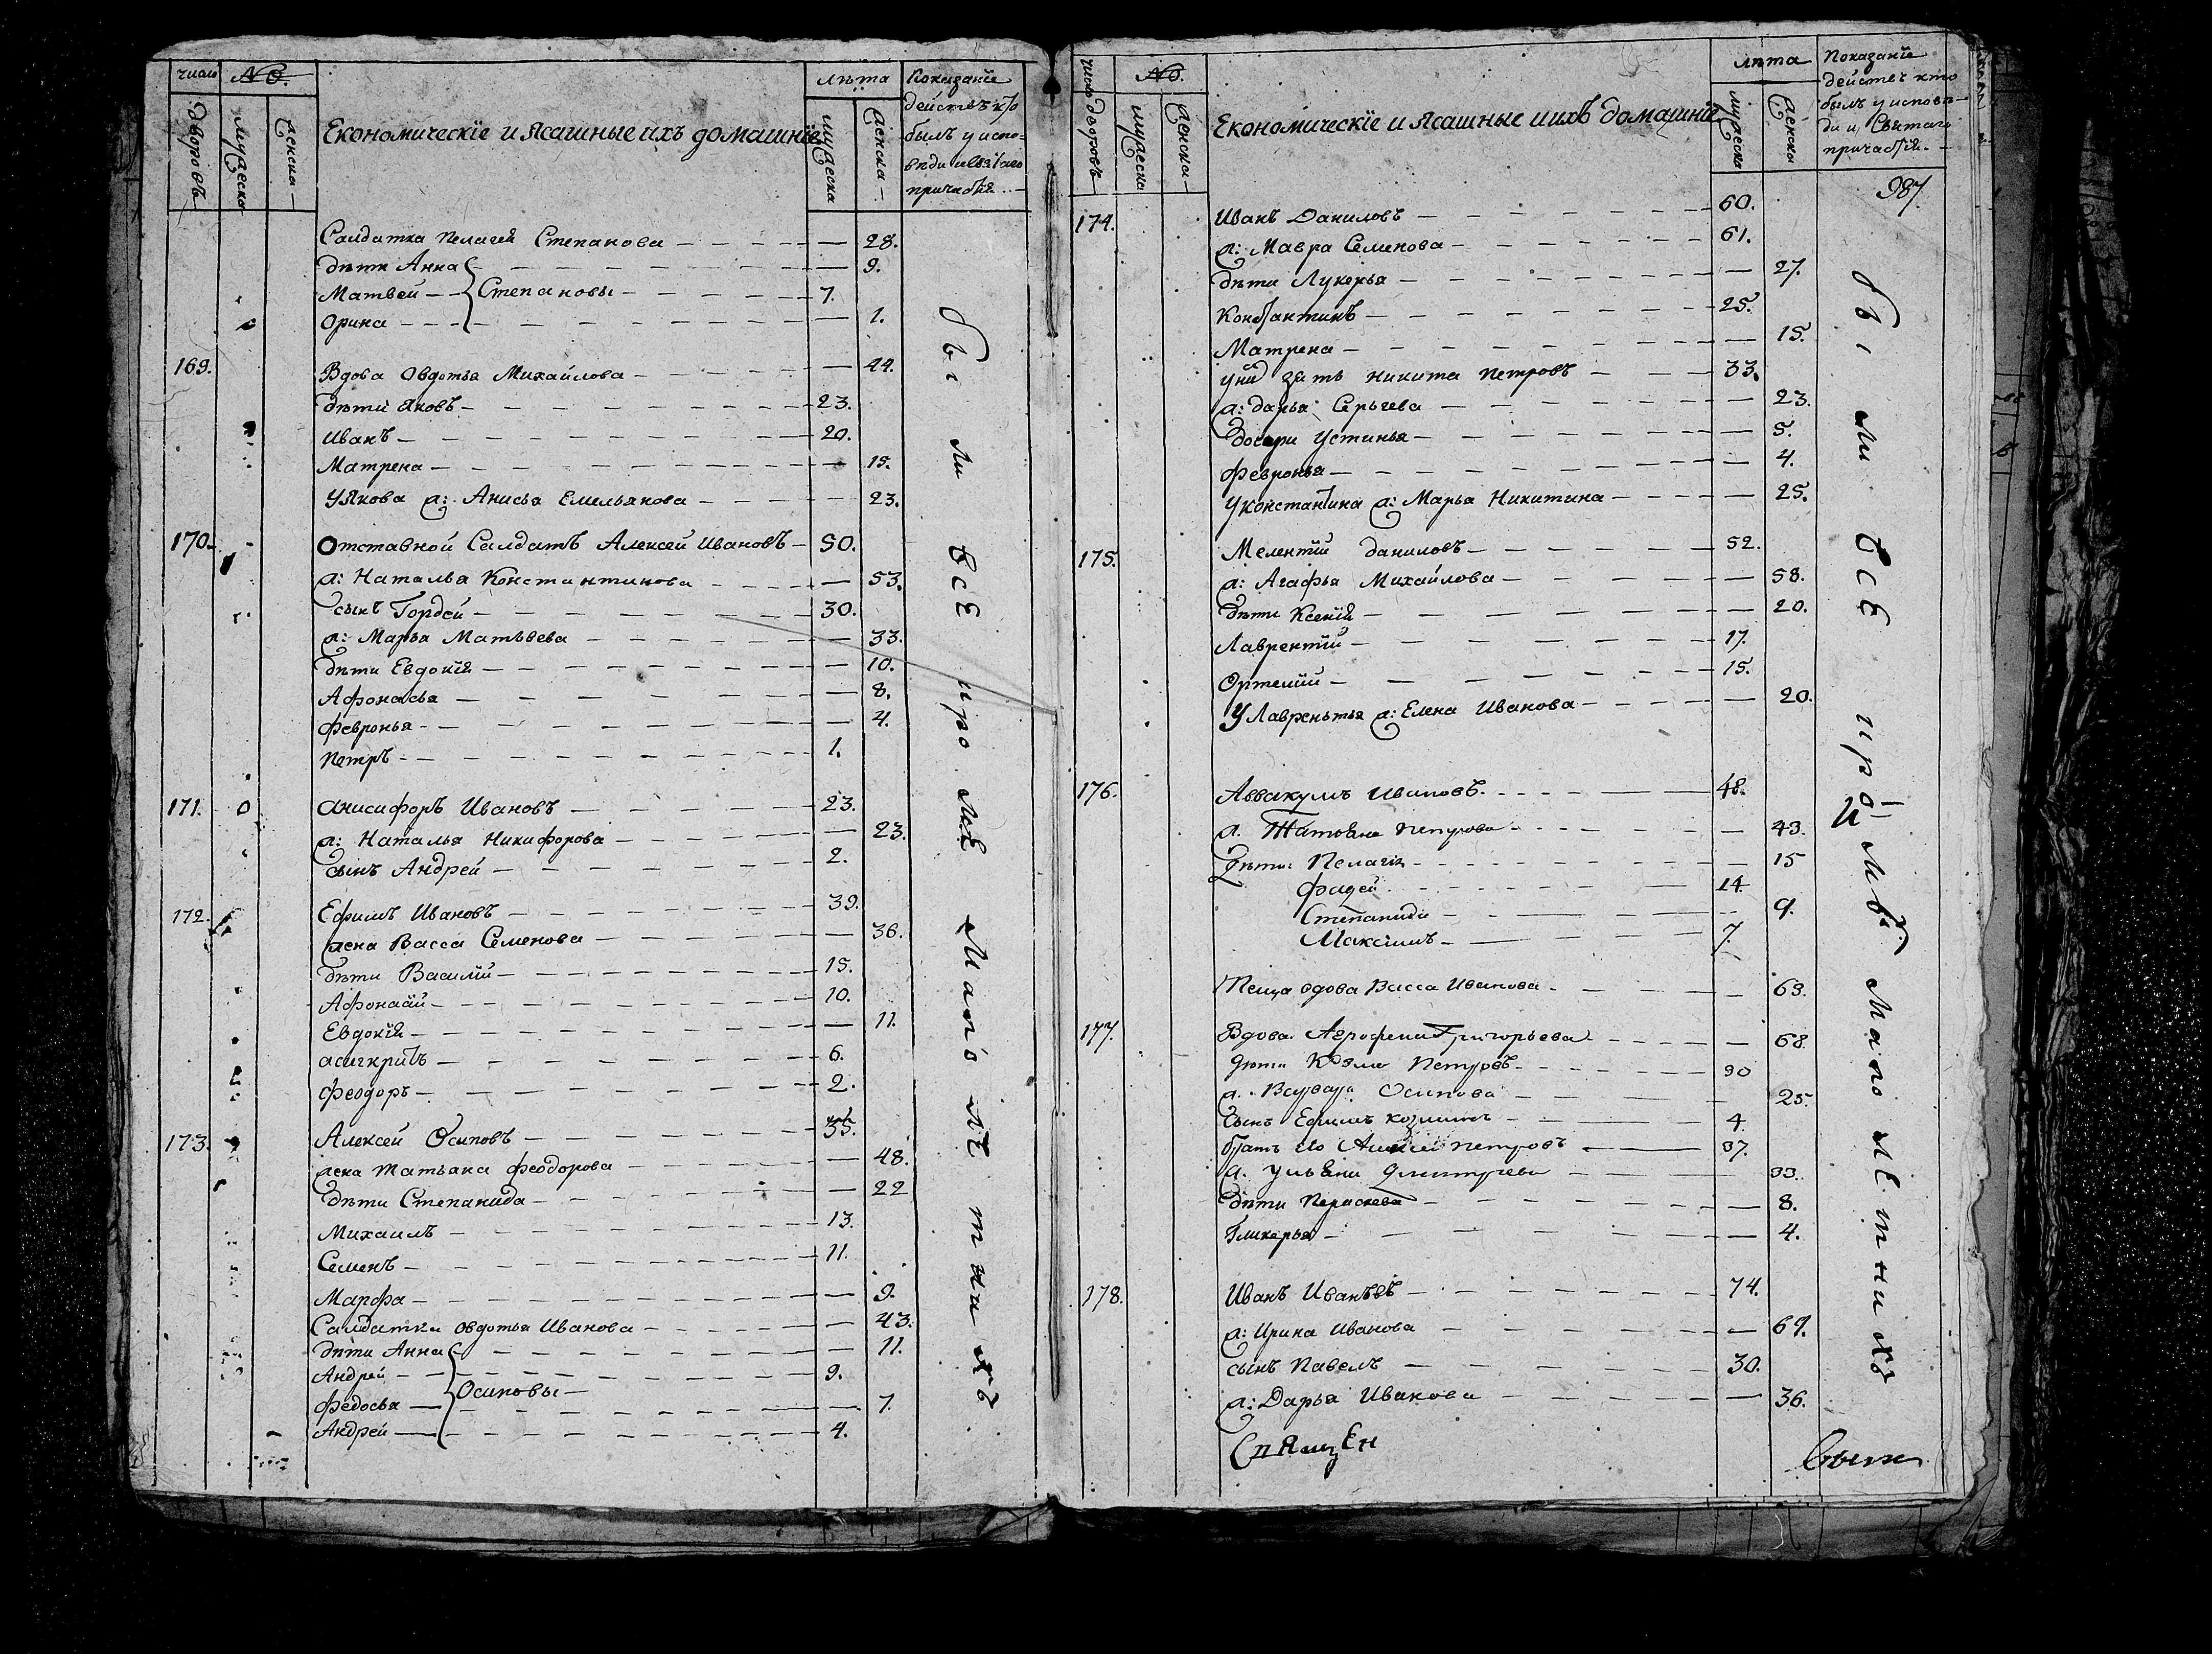 число
№.
дворовъ
мужеска
женска
Економическіе и Ясашные ихъ домашніе
лѣта
мужеска
женска
Показаніе
действъ кто
былъ у испо-
вѣди и святаго
причастія
Салдатка Пелагея Степанова 28.
дѣти Анна 9.
Матвей Степановы 7.
Орина 1.
169. Вдова Овдотья Михайлова 44.
дѣти Яковъ 23.
Иванъ 20.
Матрена 15.
У Якова ж: Анисья Емельянова 23.
170. Отставной Салдатъ Алексей Ивановъ 50.
ж: Наталья Константинова 53.
сынъ Гордей 30.
ж: Марья Матвѣева 33.
дѣти Евдокія 10.
Афонасья 8.
Февронья 4.
Петръ 1.
171. Анисифоръ Ивановъ 23.
ж: Наталья Никифорова 23.
сынъ Андрей 2.
172. Ефимъ Ивановъ 39.
жена Васса Семенова 36.
дѣти Василій 15.
Афонасій 10.
Евдокія 11.
асигкритъ 6.
Феодоръ 2.
173. Алексей Осиповъ 55.
жена Татьяна Феодорова 48.
дѣти Степанида 22
Михаилъ 13.
Семенъ 11.
Марфа 9.
Салдатка Овдотья Иванова 43.
дѣти Анна 11.
Андрей 9.
Осиповы
Федосья 7.
Андрей 4.
были все кроме малолѣтнихъ
число дворовъ
№.
мужеска
женска
Економическіе и Ясашные и ихъ домашніе
лѣта
мужеска
женска
Показаніе
действъ кто
былъ у исповѣ-
ди и Святаго
причастія.
987.
174. Иванъ Даниловъ 60.
ж: Мавра Семенова 61.
дѣти Лукерья 27.
Константинъ 25.
Матрена 15.
У ни зять Никита Петровъ 33.
ж: Дарья Серьгева 23.
дочери Устинья 5.
Февронья 4.
У Константина ж: Марья Никитина 25.
175. Мелентій Даниловъ 52.
ж: Агафья Михайлова 58.
дѣти Ксенія 20.
Лаврентій 17.
Ортемій 15.
У Лаврентья ж: Елена Иванова 20.
176. Аввакумъ Ивановъ 48.
ж. Татьяна Петрова 43.
Дѣти: Пелагія 15
Фадей 14
Степанида 9.
Максимъ 7.
Теща вдова Васса Иванова 63.
177. Вдова Агрофена Григорьева 68
Дѣти Козма Петровъ 30
ж. Варвара Осипова 25.
Сынъ Ефимъ Козминъ 4.
братъ Ево Алексей Петровъ 37.
ж. Ульяна Дмитрева 33.
дѣти Пераскева 8.
Гликерья 4.
178. Иванъ Ивановъ 74.
ж: Ирина Иванова 69.
сынъ Павелъ 30.
ж: Дарья Иванова 36.
были все кроме малолетнихъ
Священ
Сынъ